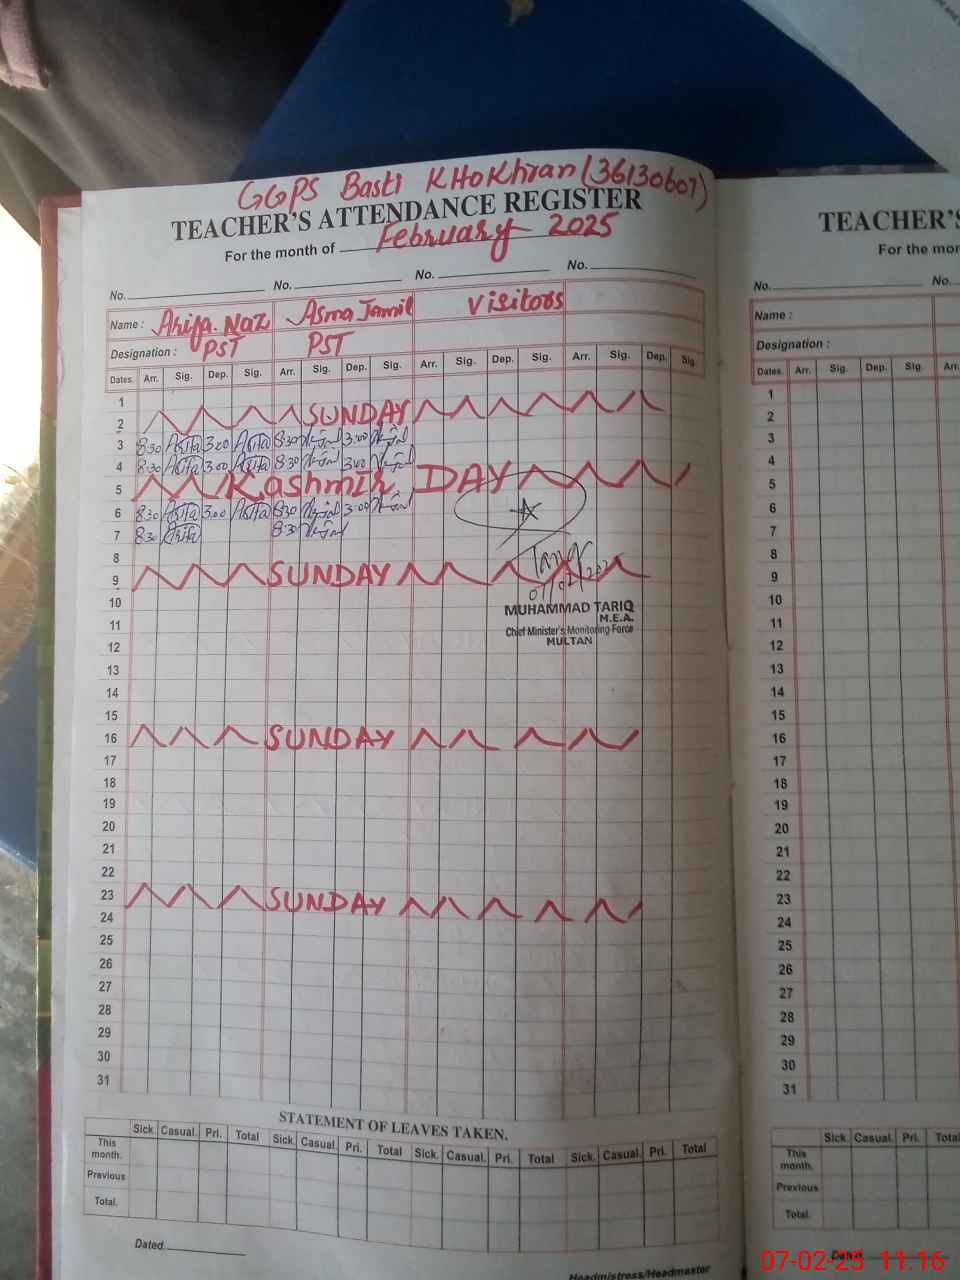 GGPS Basti KHOKhran (36130607)
TEACHER'S ATTENDANCE REGISTER
For the month of February 2025
No. No. No. No.
Name : Arifa Naz Asma Jamil Visitors
Designation : PST PST
Dates. Arr. Sig. Dep. Sig. Arr. Sig. Dep. Sig. Arr. Sig. Dep. Sig. Arr. Sig. Dep. Sig.
1
2 SUNDAY
3 8:30 Arifa 3:00 Arifa 8:30 3:00
4 8:30 Arifa 3:00 Arifa 8:30 3:00
5 Kashmir DAY
6 8:30 Arifa 3:00 Arifa 8:30 3:00
7 8:30 Arifa 8:30
8
9 SUNDAY
Tariq
07/02/2025
10
MUHAMMAD TARIQ
M.E.A.
11
Chief Minister's Monitoring Force
MULTAN
12
13
14
15
16 SUNDAY
17
18
19
20
21
22
23 SUNDAY
24
25
26
27
28
29
30
31
STATEMENT OF LEAVES TAKEN.
Sick. Casual. Pri. Total Sick. Casual. Pri. Total Sick. Casual. Pri. Total Sick. Casual. Pri. Total
This month.
Previous
Total.
Dated
Headmistress/Headmaster
TEACHER'S
For the mon
No. No.
Name :
Designation :
Dates. Arr. Sig. Dep. Sig. Arr.
1
2
3
4
5
6
7
8
9
10
11
12
13
14
15
16
17
18
19
20
21
22
23
24
25
26
27
28
29
30
31
Sick. Casual. Pri. Total
This month.
Previous
Total.
Dated
07-02-25 11:16